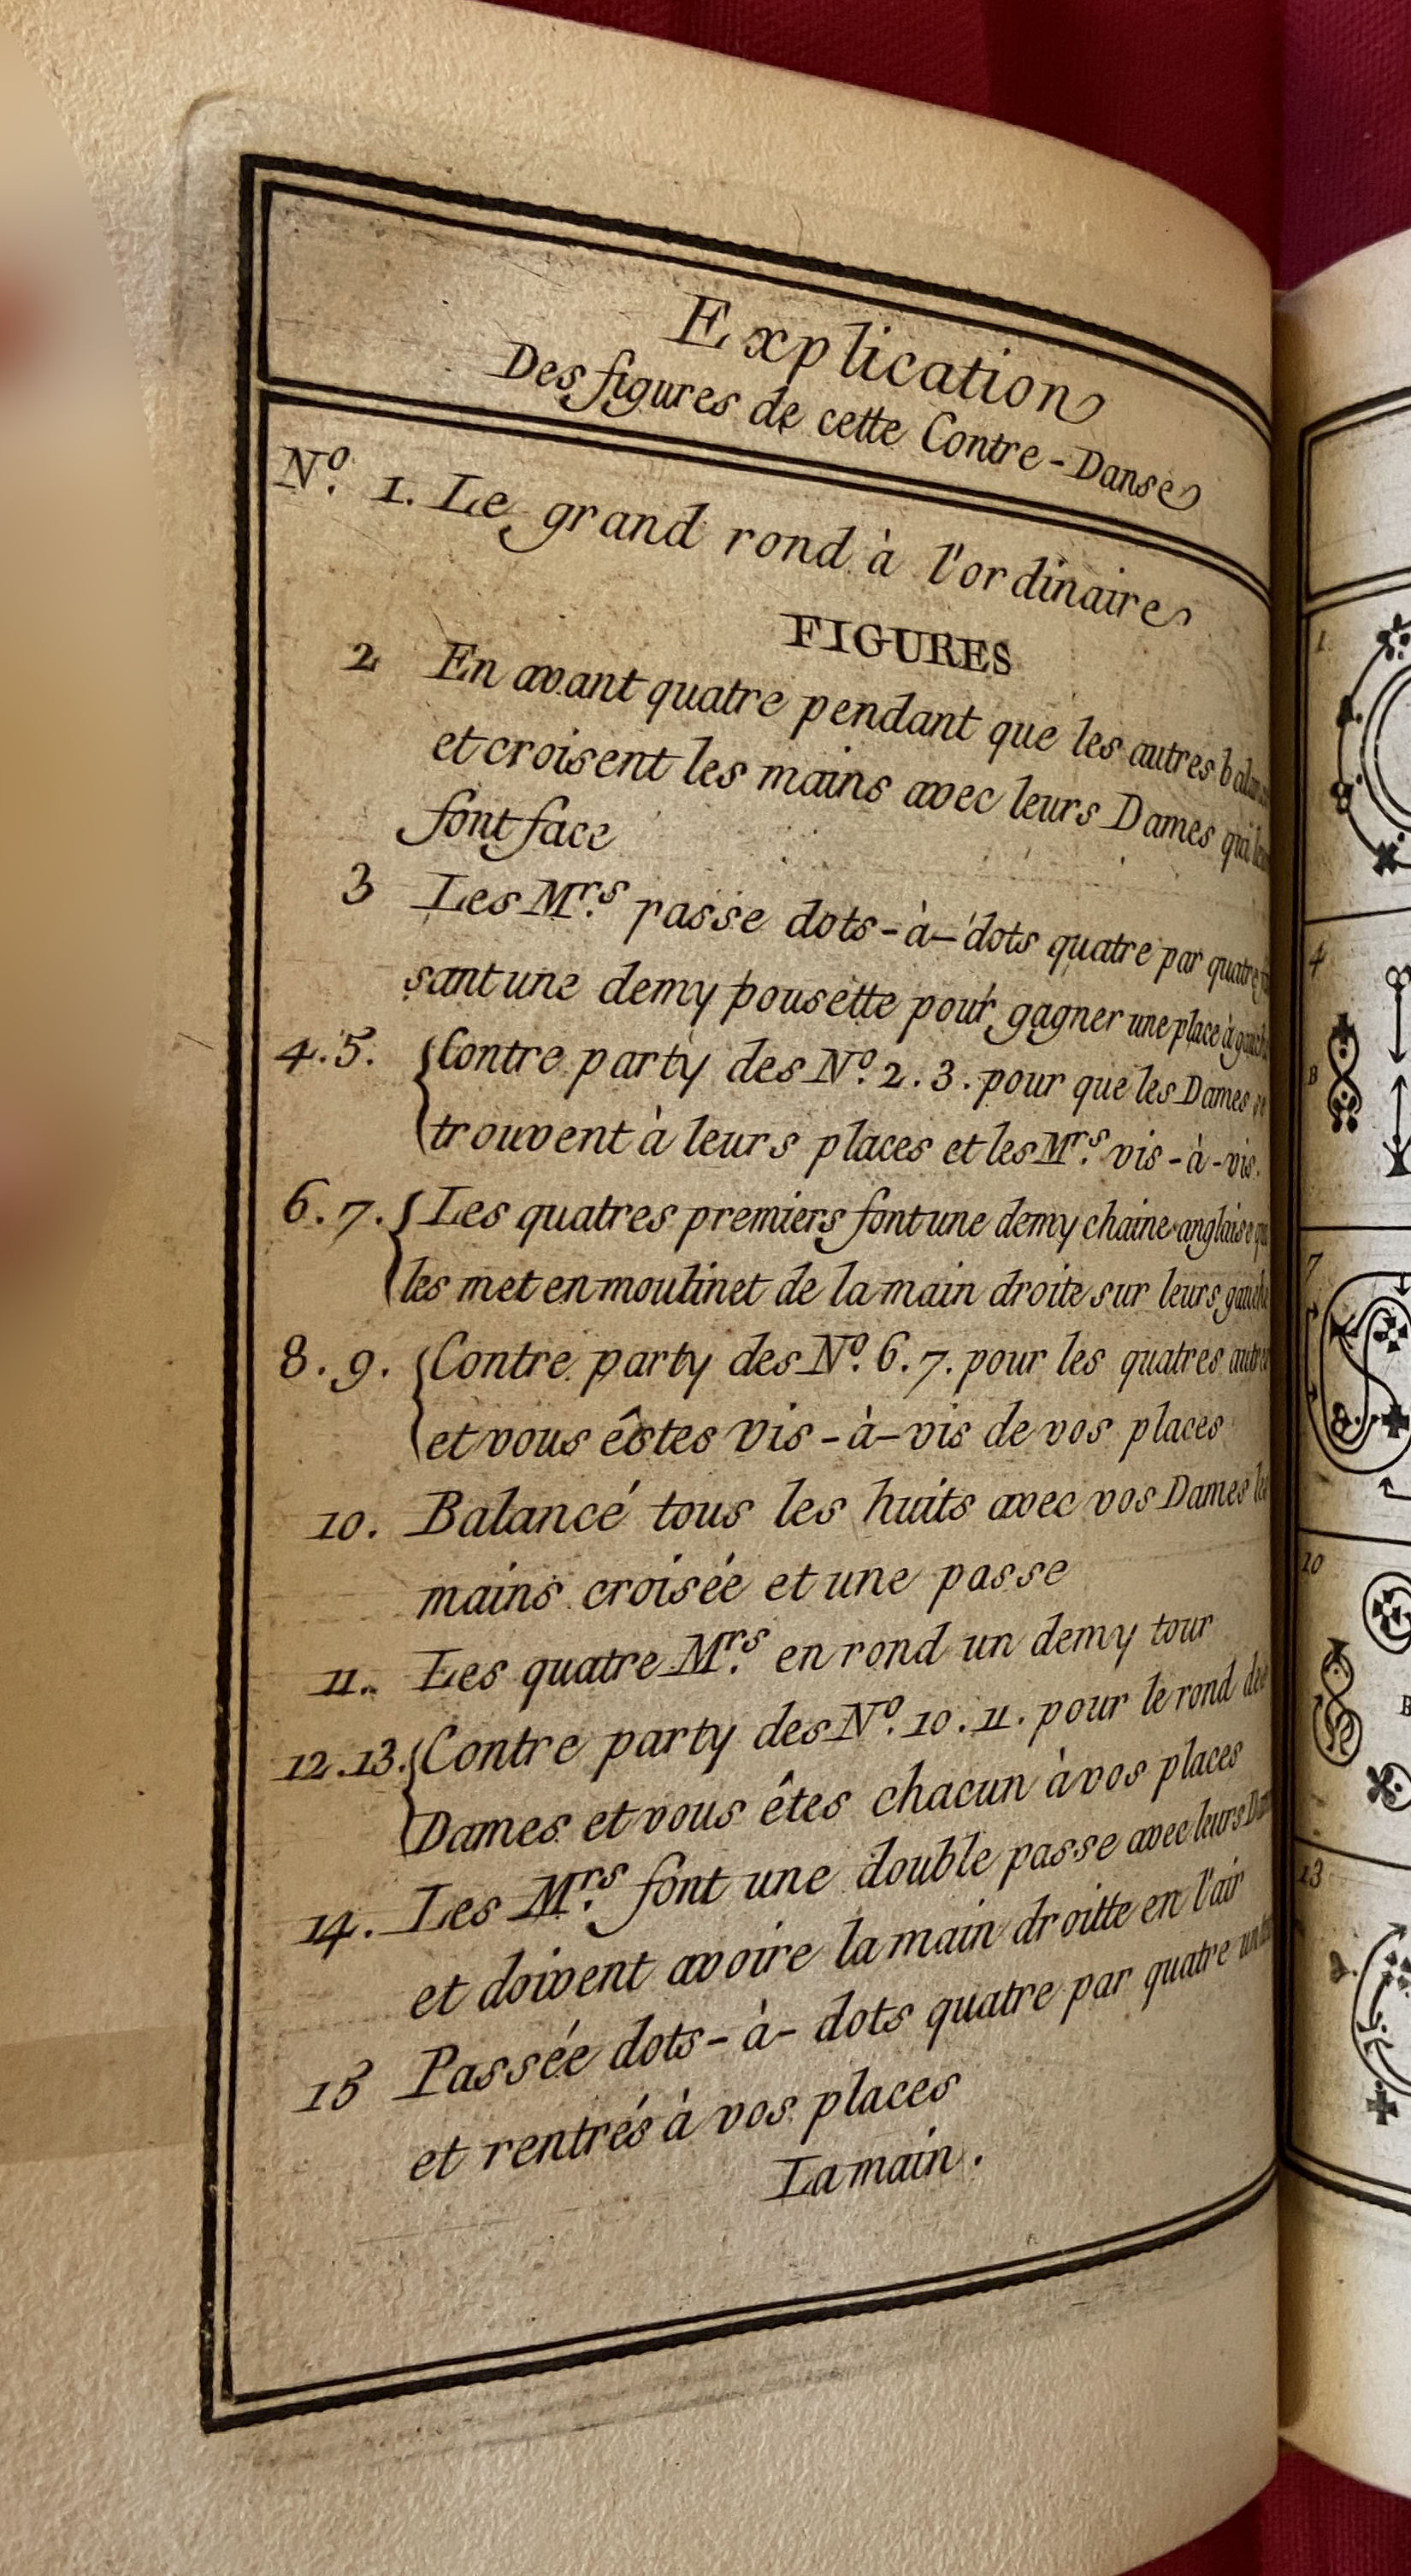 Explication
Des figures de cette Contre-Danse
Nº. 1. Le grand rond à l'ordinaire
FIGURES
2 En avant quatre pendant que les autres
et croisent les mains avec leurs Dames
font face
3 Les Mrs. passe dots-à-dots quatre par quatre
sant une demy pousette pour gagner une place à
4.5. Contre party des Nº. 2.3. pour que les Dames se
trouvent à leurs places et les Mrs. vis-à-vis.
6.7. Les quatres premiers font une demy chaine anglaise
les met en moulinet de la main droite sur leurs
8.9. Contre party des Nº. 6.7. pour les quatres
et vous êstes vis-à-vis de vos places
10. Balancé tous les huits avec vos Dames les
mains croisée et une passe
11. Les quatre Mrs. en rond un demy tour
12.13. Contre party des Nº. 10.11. pour le rond des
Dames et vous êtes chacun à vos places
14. Les Mrs. font une double passe avec leurs
et doivent avoire la main droitte en l'air
15 Passée dots-à-dots quatre par quatre
et rentrés à vos places
La main.
1.
4
B
7
10
B
13